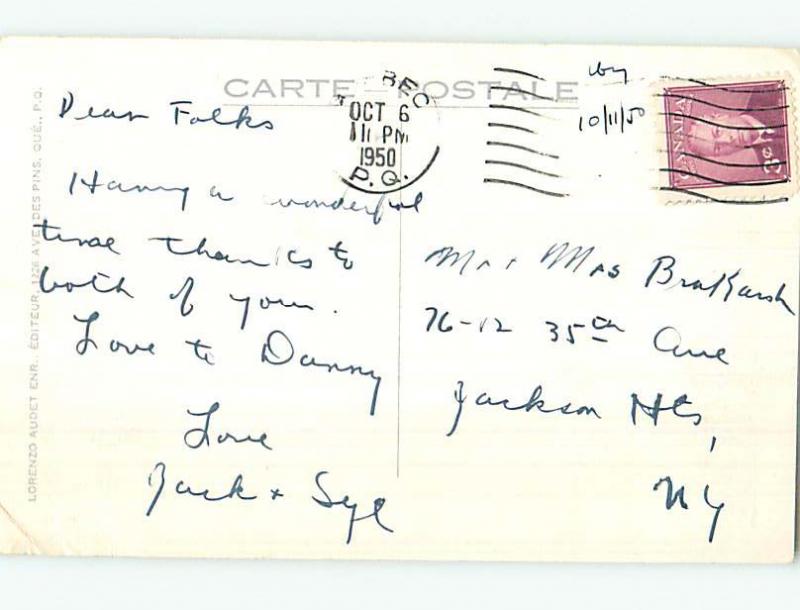 CARTE POSTALE
BEC
OCT 6
11 PM
1950
P.Q.
by
10/11/50
CANADA
3¢
Dear Folks
Having a wonderful
time thanks to
both of you.
Love to Danny
Love
Jack + Syl
Mr + Mrs
76-12 35th Ave
Jackson Hts,
NY
LORENZO AUDET ENR., ÉDITEUR, 1226 AVE. DES PINS, QUÉ., P.Q.